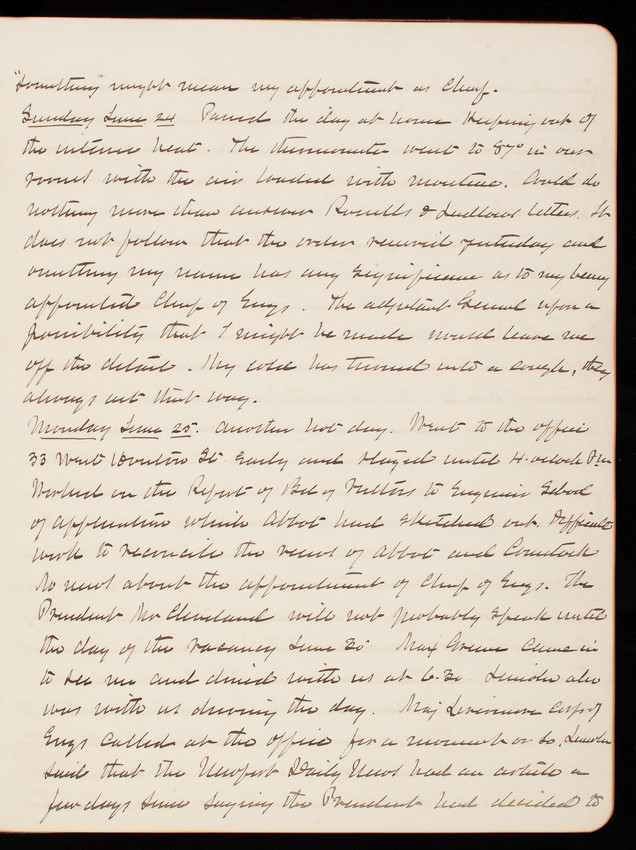 "Something might mean my appointment as Chief.
Sunday June 24 Passed the day at home keeping out of
the intense heat. The thermometer went to 87° in our
rooms with the air loaded with moisture. Could do
nothing more than answer & Ludlows letters. It
does not follow that the order received yesterday and
omitting my name has any significance as to my being
appointed Chief of Engs. The adjutant General upon a
possibility that I might be made would leave me
off the detail. My cold has turned into a cough, they
always act that way.
Monday June 25. Another hot day. Went to the office
33 West Houston St early and stayed until 4. oclock P.m
Worked on the Report of Bd of Visitors to Engineer School
of application which Abbot had sketched out. Difficult
work to reconcile the views of Abbot and Comstock
No news about the appointment of Chief of Engs. The
President Mr Cleveland will not probably speak until
the day of the vacancy June 30 Maj Greene came in
to see me and dined with us at 6.30 Lincoln also
was with us during the day. Maj Livermore Corps of
Engs called at the office for a moment or so. Lincoln
said that the Newport Daily News had an article a
few days since saying the President had decided to